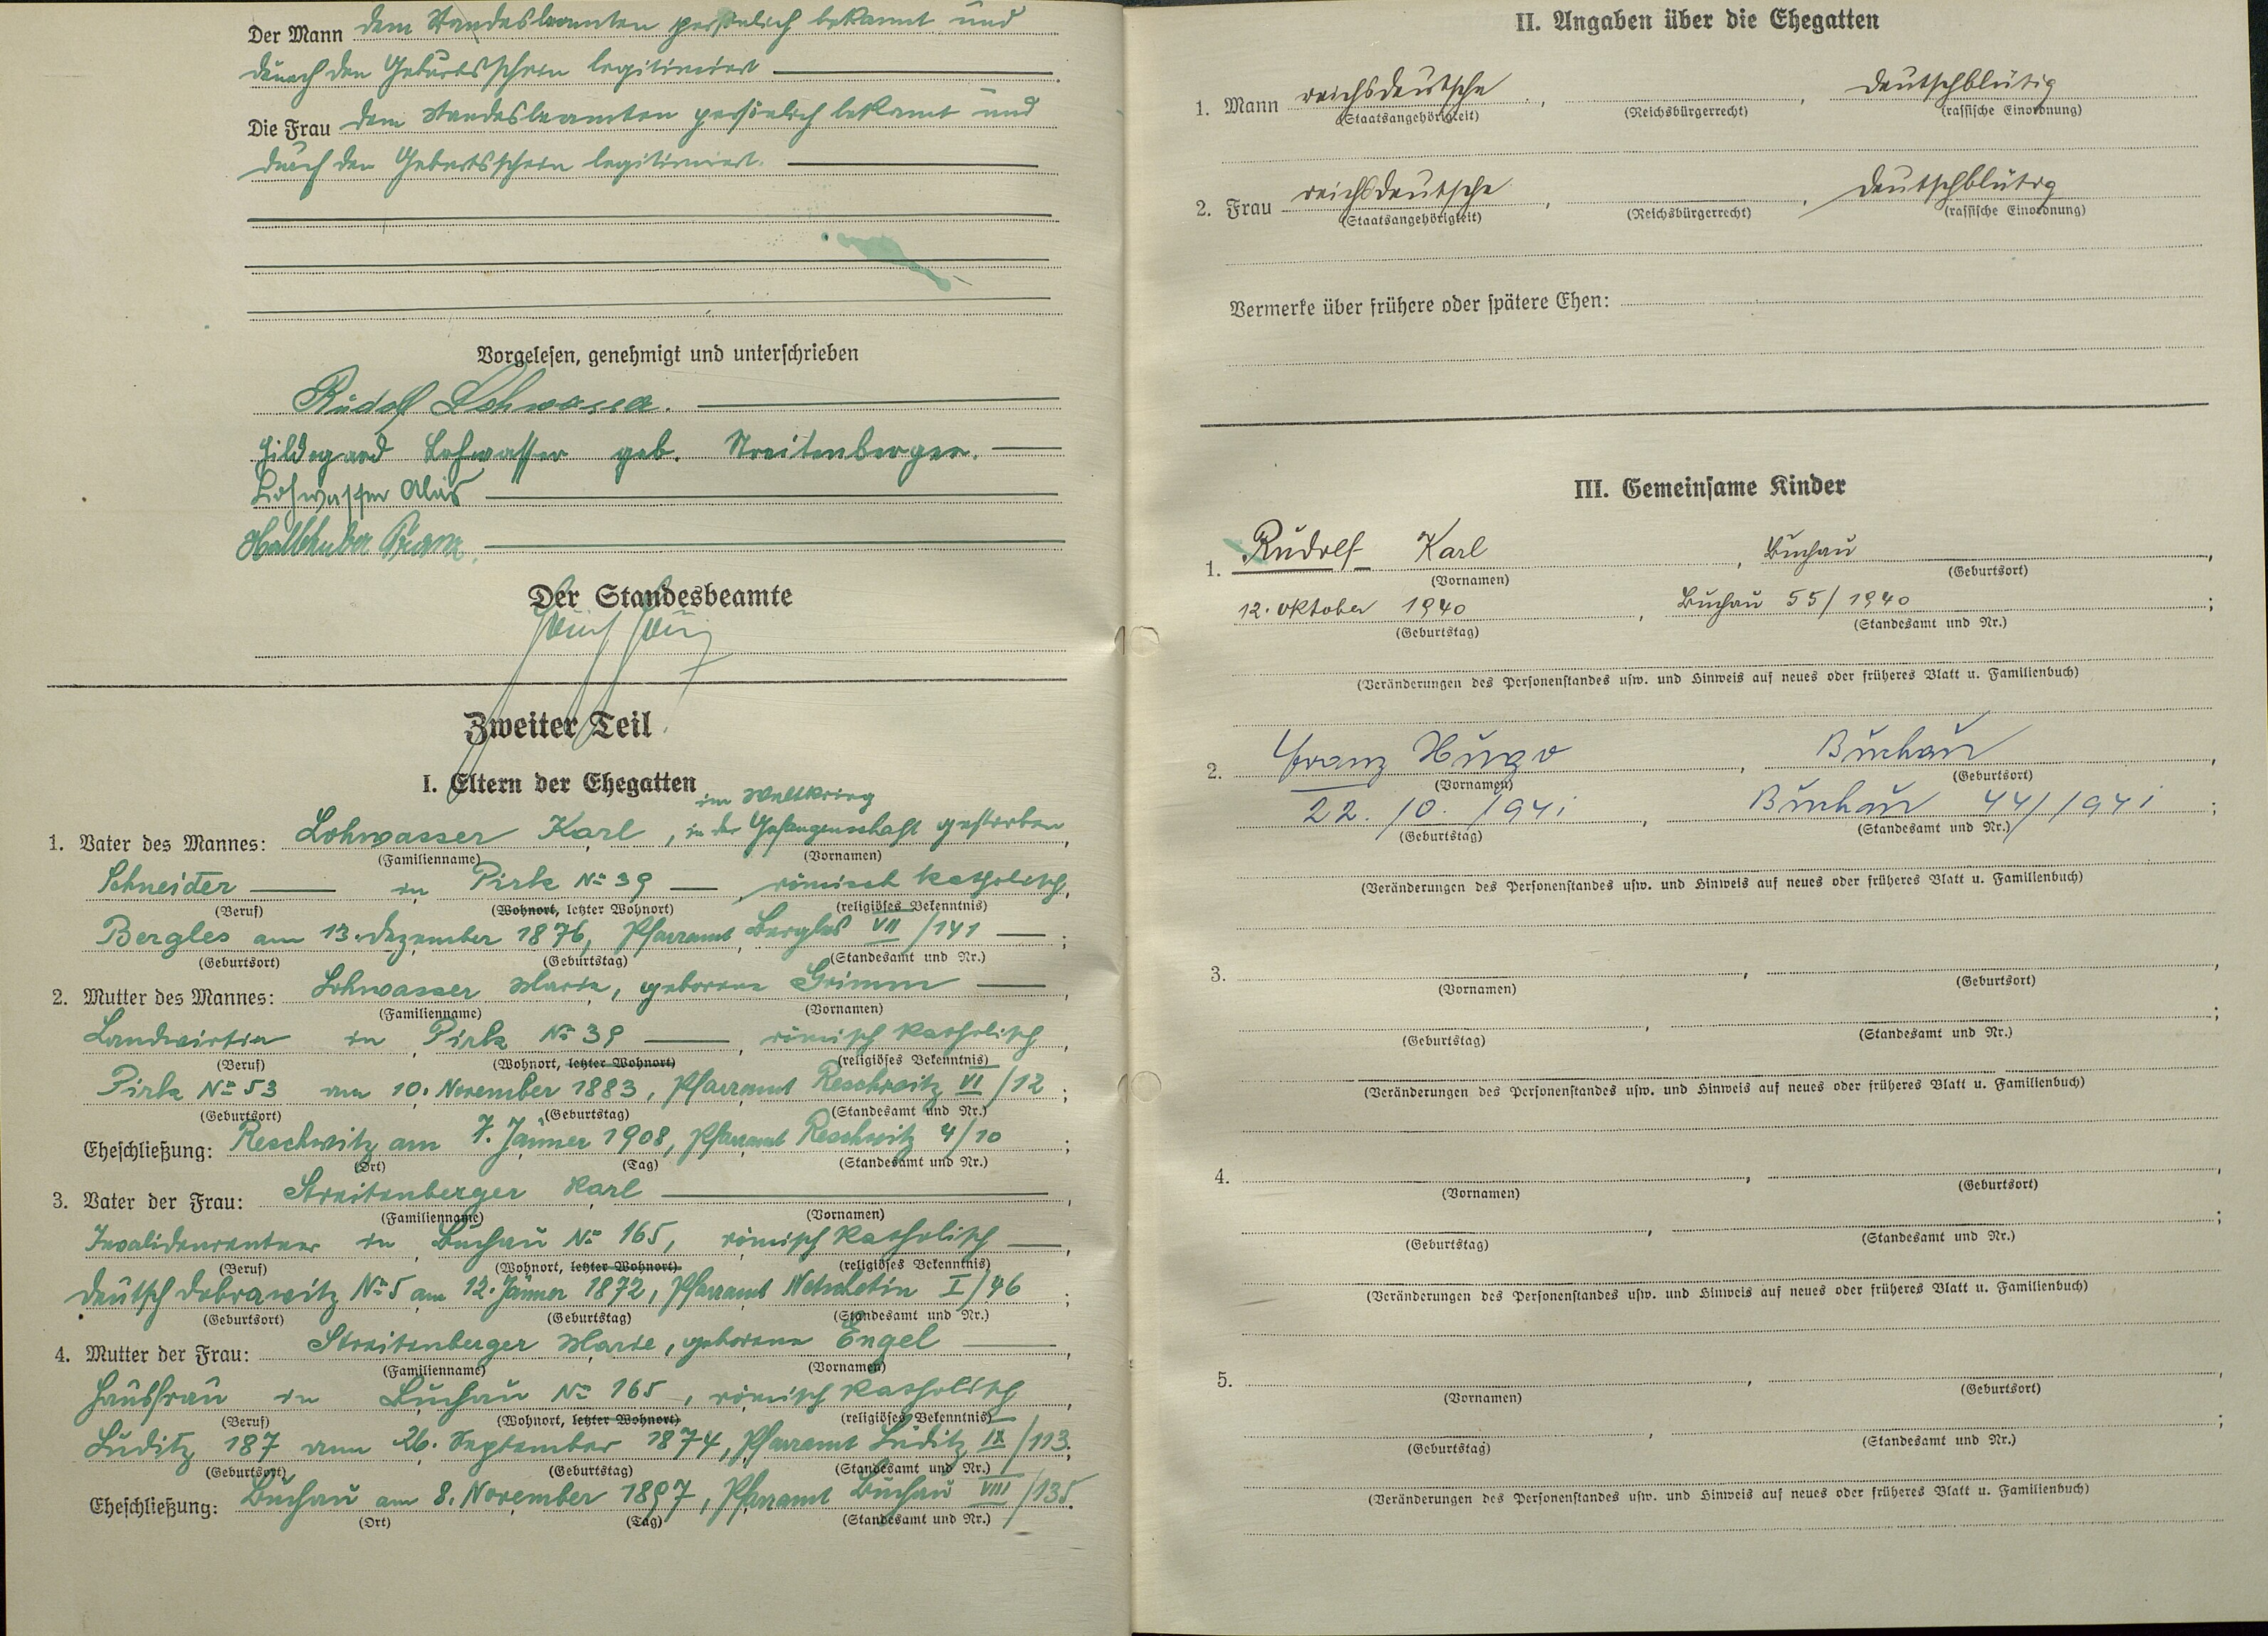 Der Mann dem Standesbeamten persönlich bekannt und
durch den Geburtsschein legitimiert
Die Frau dem Standesbeamten persönlich bekannt und
durch den Geburtsschein legitimiert.
Vorgelesen, genehmigt und unterschrieben
Rudolf Lohwasser.
Hildegard Lohwasser geb. Streitenberger.
Lohwasser Alois
Franz
Der Standesbeamte
Zweiter Teil
I. Eltern der Ehegatten
im Weltkrieg
1. Vater des Mannes: Lohwasser Karl, in der Gefangenschaft gestorben,
(Familienname) (Vornamen)
Schneider in Pirk No 39, römisch katholisch,
(Beruf) (Wohnort, letzter Wohnort) (religiöses Bekenntnis)
Bergles am 13. Dezember 1876, Pfarramt Bergles VII/141;
(Geburtsort) (Geburtstag) (Standesamt und Nr.)
2. Mutter des Mannes: Lohwasser Marie, geborene Grimm,
(Familienname) (Vornamen)
Landwirtin in Pirk No 39, römisch katholisch,
(Beruf) (Wohnort, letzter Wohnort) (religiöses Bekenntnis)
Pirk No 53 am 10. November 1883, Pfarramt Reschwitz VI/12;
(Geburtsort) (Geburtstag) (Standesamt und Nr.)
Eheschließung: Reschwitz am 7. Jänner 1908, Pfarramt Reschwitz 4/10;
(Ort) (Tag) (Standesamt und Nr.)
3. Vater der Frau: Streitenberger Karl,
(Familienname) (Vornamen)
Invalidenrentner in Buchau No 165, römisch katholisch,
(Beruf) (Wohnort, letzter Wohnort) (religiöses Bekenntnis)
Deutsch Dobrawitz No 5 am 12. Jänner 1872, Pfarramt Netschetin I/46;
(Geburtsort) (Geburtstag) (Standesamt und Nr.)
4. Mutter der Frau: Streitenberger Marie, geborene Engel,
(Familienname) (Vornamen)
Hausfrau in Buchau No 165, römisch katholisch,
(Beruf) (Wohnort, letzter Wohnort) (religiöses Bekenntnis)
Luditz 187 am 26. September 1874, Pfarramt Luditz IX/113;
(Geburtsort) (Geburtstag) (Standesamt und Nr.)
Eheschließung: Buchau am 8. November 1897, Pfarramt Buchau VIII/135.
(Ort) (Tag) (Standesamt und Nr.)
II. Angaben über die Ehegatten
1. Mann reichsdeutsche, , deutschblütig
(Staatsangehörigkeit) (Reichsbürgerrecht) (rassische Einordnung)
2. Frau reichsdeutsche, , deutschblütig
(Staatsangehörigkeit) (Reichsbürgerrecht) (rassische Einordnung)
Vermerke über frühere oder spätere Ehen:
III. Gemeinsame Kinder
1. Rudolf Karl, Buchau,
(Vornamen) (Geburtsort)
12. Oktober 1940, Buchau 55/1940;
(Geburtstag) (Standesamt und Nr.)
(Veränderungen des Personenstandes usw. und Hinweis auf neues oder früheres Blatt u. Familienbuch)
2. Franz Hugo, Buchau,
(Vornamen) (Geburtsort)
22. 10. 1941, Buchau 44/1941;
(Geburtstag) (Standesamt und Nr.)
(Veränderungen des Personenstandes usw. und Hinweis auf neues oder früheres Blatt u. Familienbuch)
3. , ,
(Vornamen) (Geburtsort)
, ;
(Geburtstag) (Standesamt und Nr.)
(Veränderungen des Personenstandes usw. und Hinweis auf neues oder früheres Blatt u. Familienbuch)
4. , ,
(Vornamen) (Geburtsort)
, ;
(Geburtstag) (Standesamt und Nr.)
(Veränderungen des Personenstandes usw. und Hinweis auf neues oder früheres Blatt u. Familienbuch)
5. , ,
(Vornamen) (Geburtsort)
, ;
(Geburtstag) (Standesamt und Nr.)
(Veränderungen des Personenstandes usw. und Hinweis auf neues oder früheres Blatt u. Familienbuch)